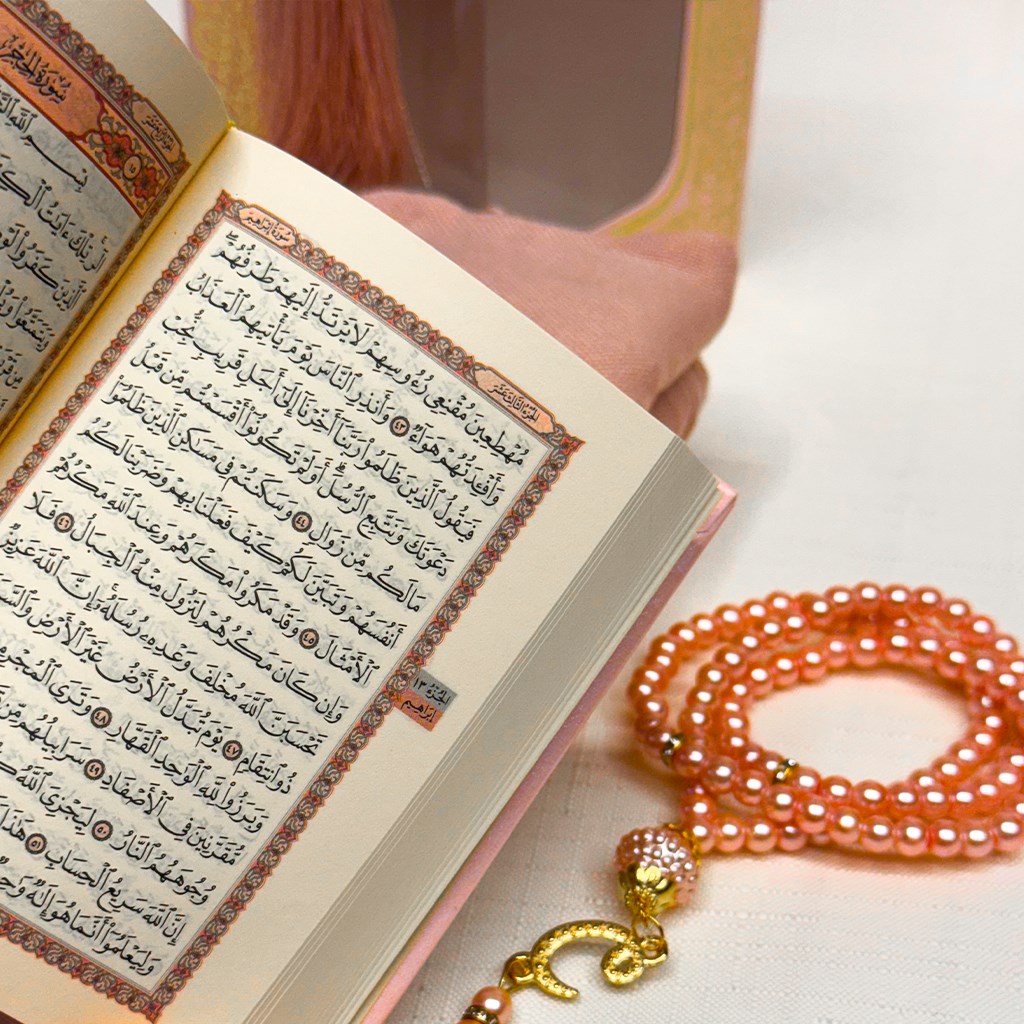 الجُزْءُ الثَّالِثَ عَشَرَ
سُورَةُ إِبْرَاهِيمَ
مُهْطِعِينَ مُقْنِعِى رُءُوسِهِمْ لَا يَرْتَدُّ إِلَيْهِمْ طَرْفُهُمْ ۖ
وَأَفْـِٔدَتُهُمْ هَوَآءٌ ٤٣ وَأَنذِرِ ٱلنَّاسَ يَوْمَ يَأْتِيهِمُ ٱلْعَذَابُ
فَيَقُولُ ٱلَّذِينَ ظَلَمُوا۟ رَبَّنَآ أَخِّرْنَآ إِلَىٰٓ أَجَلٍ قَرِيبٍ نُّجِبْ
دَعْوَتَكَ وَنَتَّبِعِ ٱلرُّسُلَ ۗ أَوَلَمْ تَكُونُوٓا۟ أَقْسَمْتُم مِّن قَبْلُ
مَا لَكُم مِّن زَوَالٍ ٤٤ وَسَكَنتُمْ فِى مَسَٰكِنِ ٱلَّذِينَ ظَلَمُوٓا۟
أَنفُسَهُمْ وَتَبَيَّنَ لَكُمْ كَيْفَ فَعَلْنَا بِهِمْ وَضَرَبْنَا لَكُمُ
ٱلْأَمْثَالَ ٤٥ وَقَدْ مَكَرُوا۟ مَكْرَهُمْ وَعِندَ ٱللَّهِ مَكْرُهُمْ
وَإِن كَانَ مَكْرُهُمْ لِتَزُولَ مِنْهُ ٱلْجِبَالُ ٤٦ فَلَا
تَحْسَبَنَّ ٱللَّهَ مُخْلِفَ وَعْدِهِۦ رُسُلَهُۥٓ ۗ إِنَّ ٱللَّهَ عَزِيزٌ
ذُو ٱنتِقَامٍ ٤٧ يَوْمَ تُبَدَّلُ ٱلْأَرْضُ غَيْرَ ٱلْأَرْضِ
وَبَرَزُوا۟ لِلَّهِ ٱلْوَٰحِدِ ٱلْقَهَّارِ ٤٨ وَتَرَى
مُّقَرَّنِينَ فِى ٱلْأَصْفَادِ ٤٩ سَرَابِيلُهُم مِّن
وُجُوهَهُمُ ٱلنَّارُ ٥٠ لِيَجْزِىَ ٱللَّهُ
إِنَّ ٱللَّهَ سَرِيعُ ٱلْحِسَابِ ٥١ هَٰذَا
وَلِيَعْلَمُوٓا۟ أَنَّمَا هُوَ إِلَٰهٌ
الجُزْءُ ١٣
إبراهيم
سُورَةُ الحِجْرِ
١٥
بِسْمِ ٱللَّهِ
الٓر ۚ تِلْكَ ءَايَٰتُ
ٱلَّذِينَ كَفَرُوا۟ لَوْ
وَيَتَمَتَّعُوا۟
مِن